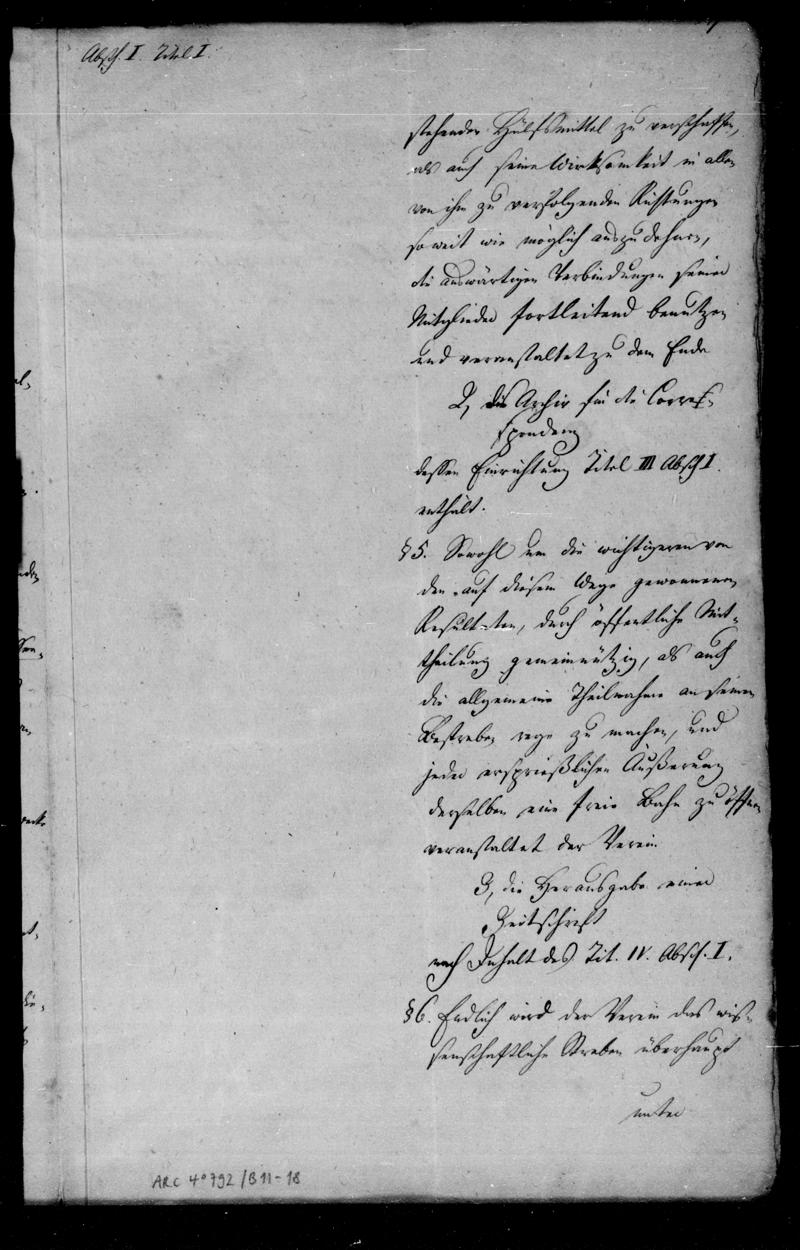 Absch. I. Titel I.
stehender Hülfsmittel zu verschaffen,
als auch seine Wirksamkeit in allen
von ihm zu verfolgenden Richtungen
so weit wie möglich auszudehnen,
die auswärtigen Verbindungen seiner
Mitglieder fortleitend benutzen
und veranstaltet zu dem Ende
2, das Archiv für die Corres-
spondenz
dessen Einrichtung Titel III Absch I.
enthält.
§ 5. Sowohl um die wichtigeren von
den auf diesem Wege gewonnenen
Resultaten, durch öffentliche Mit-
theilung gemeinnützig, als auch
die allgemeine Theilnahme an seinen
Bestreben rege zu machen, und
jeder ersprießlichen Äußerung
derselben eine freie Bahn zu öffnen
veranstaltet der Verein
3, die Herausgabe einer
Zeitschrift
nach Inhalt des Tit. IV. Absch. I.
§ 6. Endlich wird der Verein das wis-
senschaftliche Streben überhaupt
unter
ARC 4° 792 / B 11 - 18